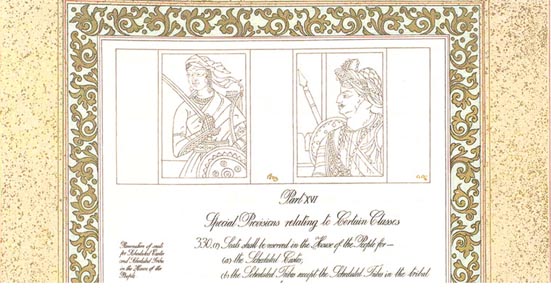 Part XVI
Special Provisions relating to Certain Classes
Reservation of seats
for Scheduled Castes
and Scheduled Tribes
in the House of the
People.
330. (1) Seats shall be reserved in the House of the People for—
(a) the Scheduled Castes;
(b) the Scheduled Tribes except the Scheduled Tribes in the tribal